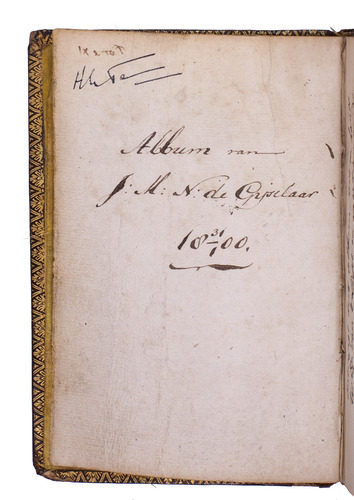 Album van
J: M: N: de Gijselaar
18 31/1 00.